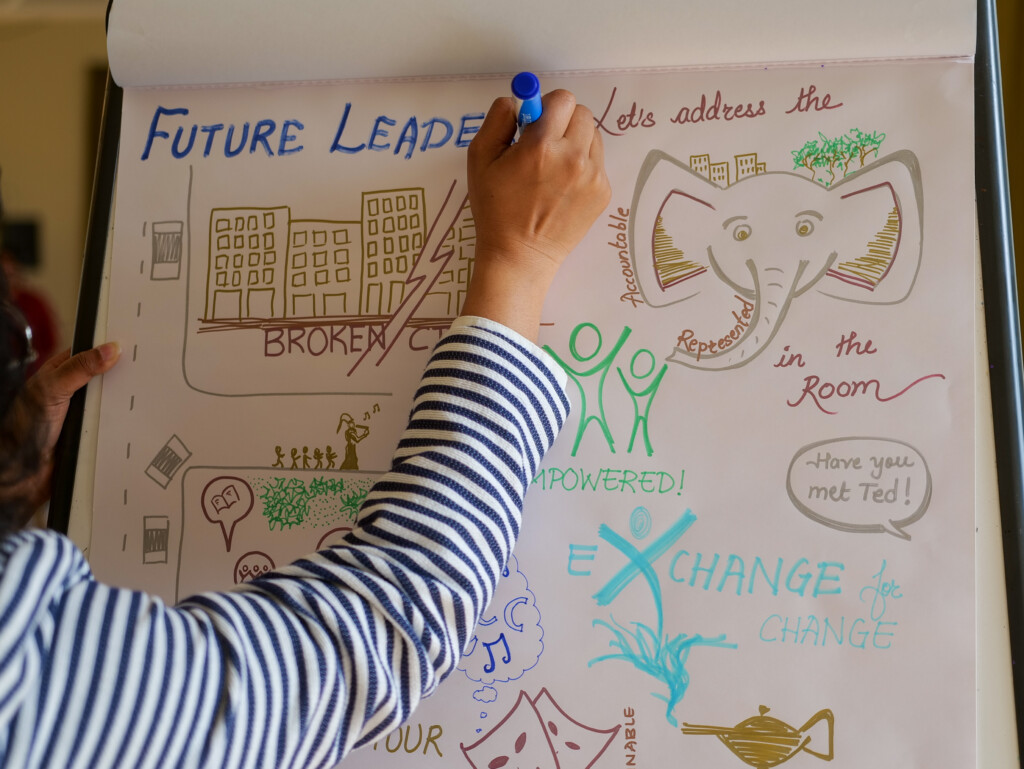 FUTURE LEADE
Let's address the
Accountable
Represented
in the
Room
BROKEN C
MPOWERED!
Have you
met Ted!
EXCHANGE for
CHANGE
OUR
NABLE